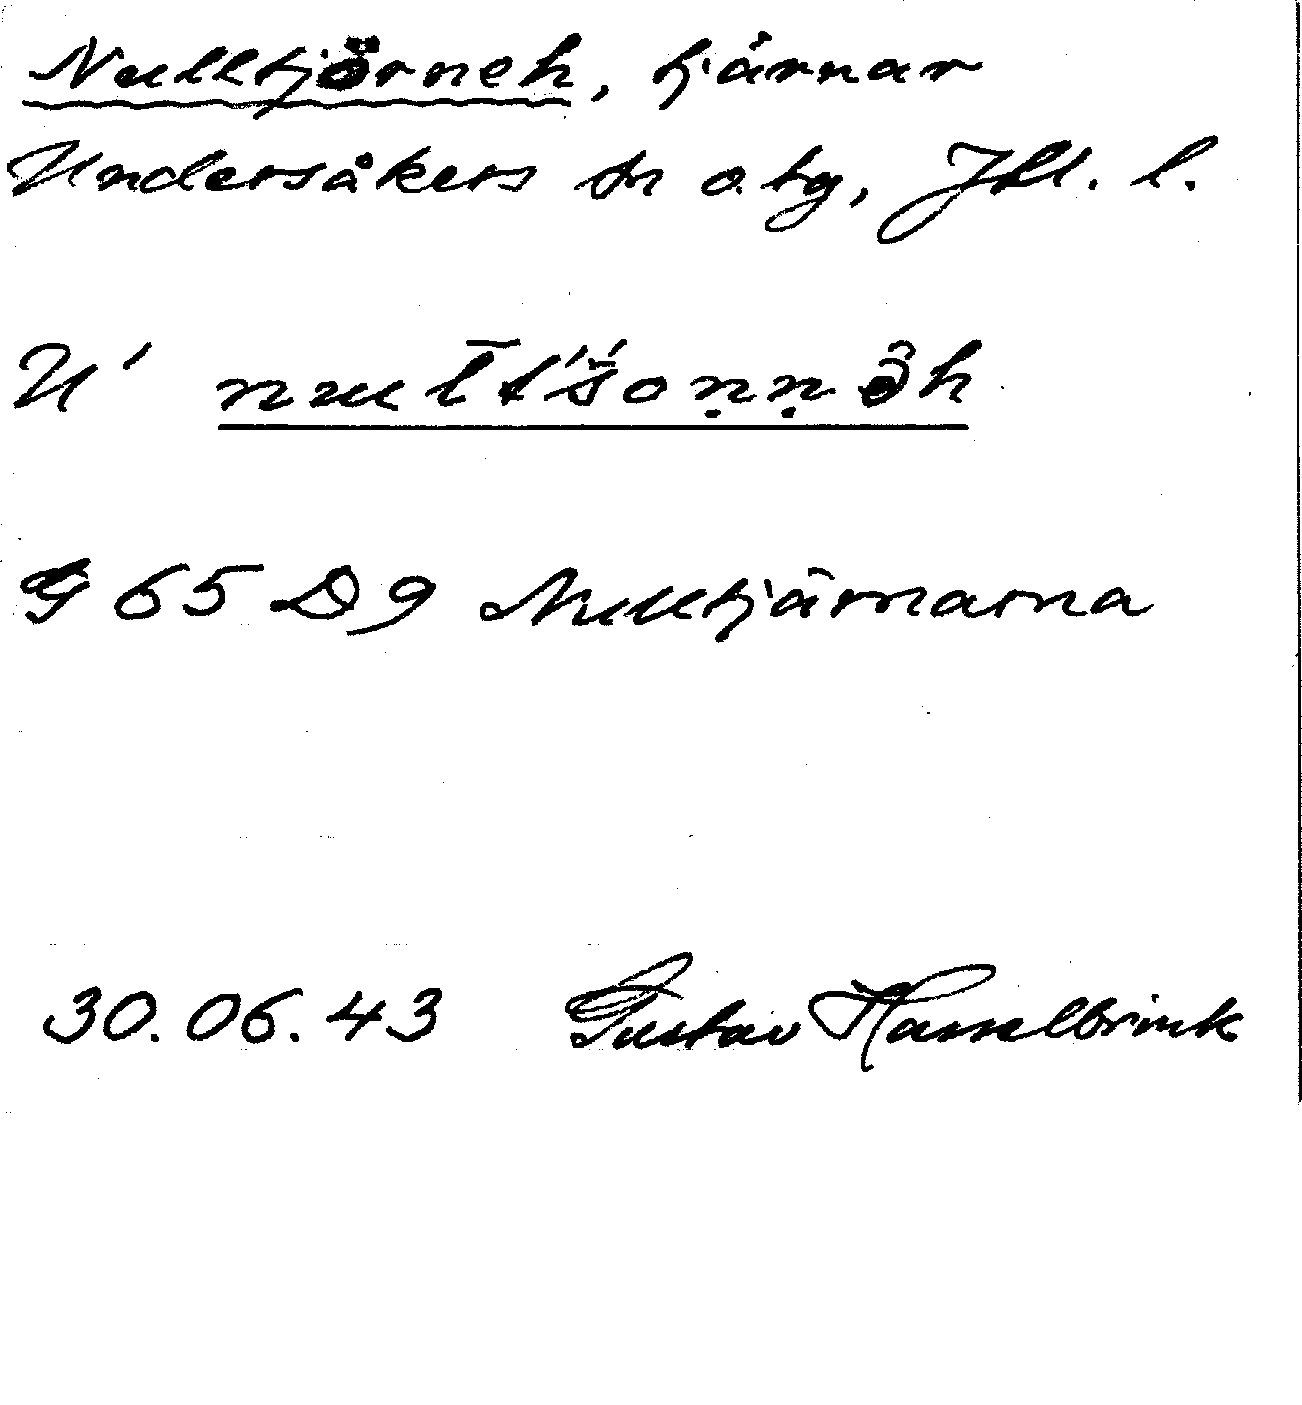 Nulltjörneh, tjärnar
Undersåkers sn o. tg, Jtl. l.
U'
G 65 D 9 Nulltjärnarna
30.06.43 Gustav Hasselbrink